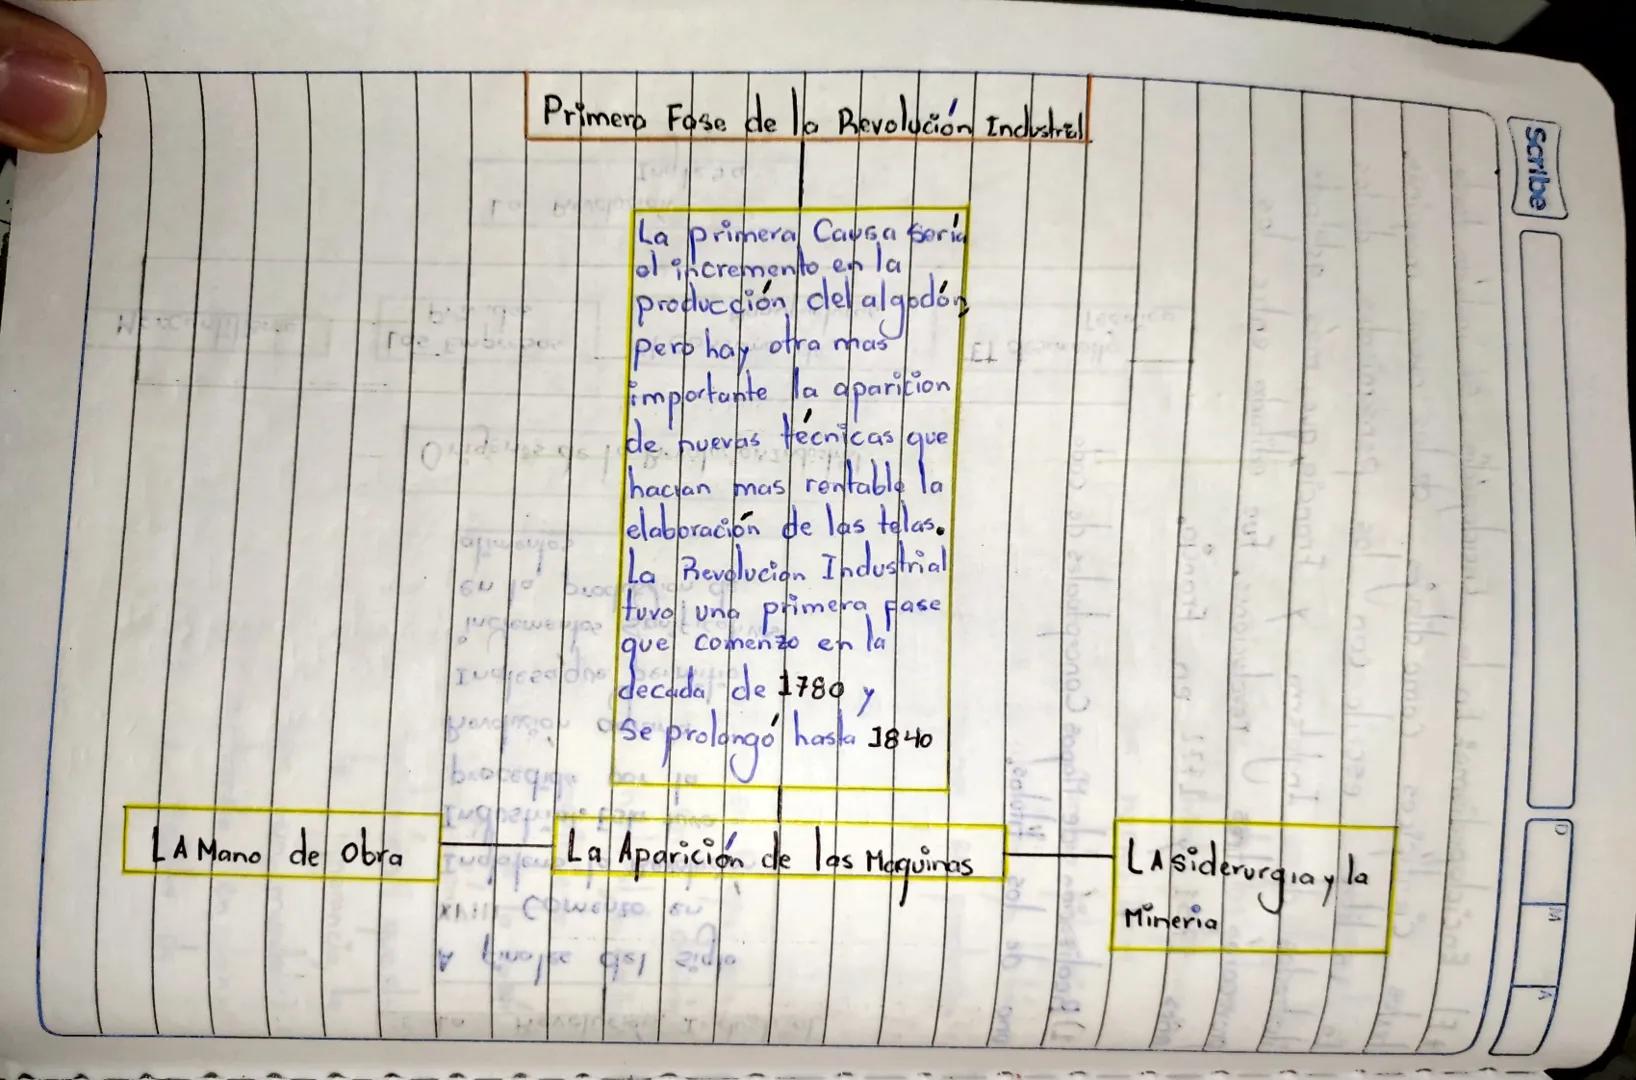 Primera Fase de la Revolución Industrial
La primera Causa seria
el incremento en la
producción del algodón,
pero hay otra mas
importante la aparicion
de nuevas técnicas que
hacian mas rentable la
elaboración de las telas.
La Revolucion Industrial
tuvo una primera fase
que comenzo en la
decada de 1780 y
Se prolongó hasta 1840
LA Mano de Obra
La Aparición de las Maquinas
LA siderurgia y la
Mineria
Scribe
D
M
A